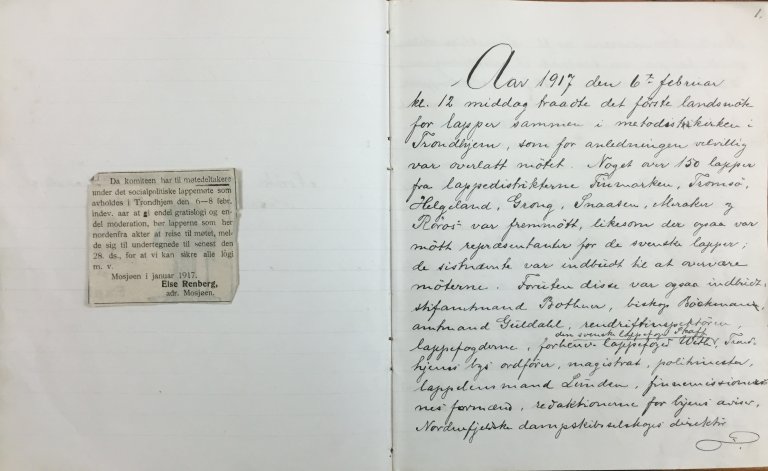 Da komiteen har til møtedeltakere
under det socialpolitiske lappemøte som
avholdes i Trondhjem den 6—8 febr.
indev. aar at gi endel gratislogi og en-
del moderation, ber lapperne som her
nordenfra akter at reise til møtet, mel-
de sig til undertegnede til senest den
28. ds., for at vi kan sikre alle logi
m. v.
Mosjøen i januar 1917.
Else Renberg,
adr. Mosjøen.
1.
Aar 1917 den 6te februar
kl. 12 middag traadte det første landsmøte
for lapper sammen i metodistkirken i
Trondhjem, som for anledningen velvillig
var overlatt møtet. Noget over 150 lapper
fra lappedistrikterne Finmarken, Tromsø,
Helgeland, Grong, Snaasen, Meraker og
Røros var fremmøtt, likesom der ogsaa var
møtt repræsentanter for de svenske lapper;
de sistnævnte var indbudt til at overvære
møterne. Foruten disse var ogsaa indbudt:
stiftamtmand Bothner, biskop Bøckmann,
amtmand Guldahl, rendriftinspektøren,
den svenske lappefogd Staaff
lappefogderne, forhenv. lappefoged Weth, Trond-
hjems bys ordfører, magistrat, politimester,
lappelensmand Lunden, finnemissioner-
nes formænd, redaktionerne for byens aviser,
Nordenfjeldske dampskibsselskaps direktør